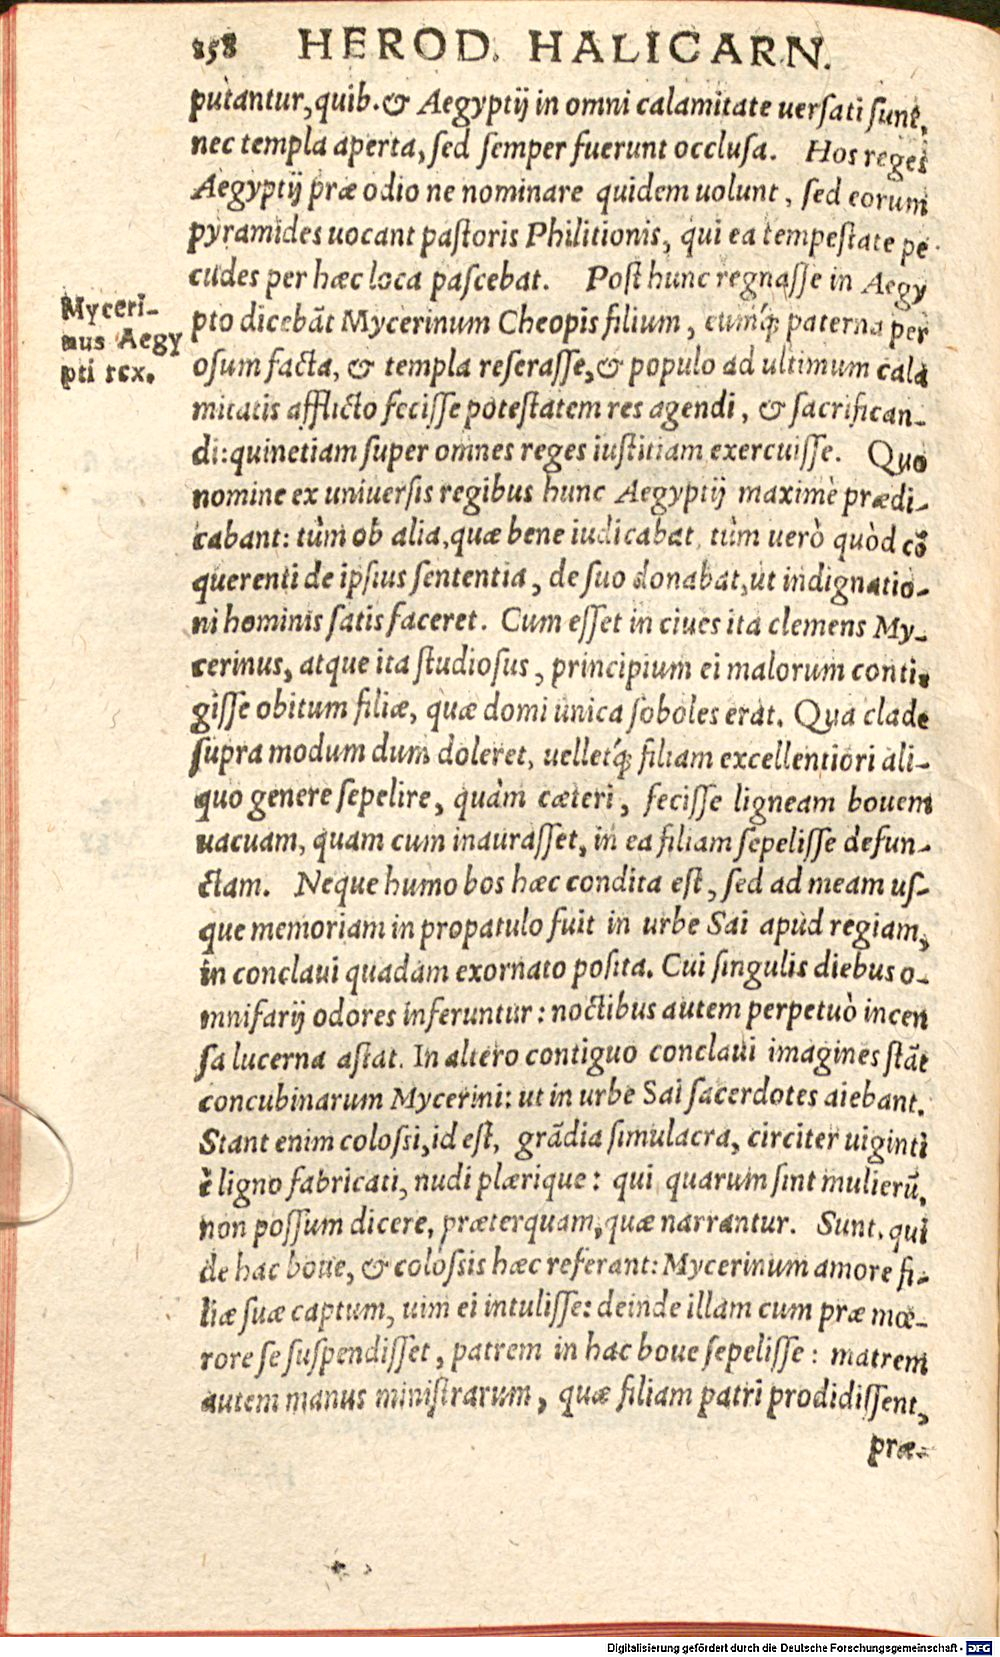 158 HEROD. HALICARN.
putantur, quib. & Aegyptij in omni calamitate uersati sunt,
nec templa aperta, sed semper fuerunt occlusa. Hos reges
Aegyptij præ odio ne nominare quidem uolunt, sed eorum
pyramides uocant pastoris Philitionis, qui ea tempestate pe
cudes per hæc loca pascebat. Post hunc regnasse in Aegy
Myceri-
nus Aegy
pti rex.
pto dicebāt Mycerinum Cheopis filium, eumq́; paterna per
osum facta, & templa reserasse, & populo ad ultimum cala
mitatis afflicto fecisse potestatem res agendi, & sacrifican-
di: quinetiam super omnes reges iustitiam exercuisse. Quo
nomine ex uniuersis regibus hunc Aegyptij maximè prædi-
cabant: tùm ob alia, quæ bene iudicabat, tùm uerò quòd cō
querenti de ipsius sententia, de suo donabat, ut indignatio-
ni hominis satis faceret. Cum esset in ciues ita clemens My-
cerinus, atque ita studiosus, principium ei malorum conti-
gisse obitum filiæ, quæ domi unica soboles erat. Qua clade
supra modum dum doleret, uelletq́; filiam excellentiori ali-
quo genere sepelire, quàm cæteri, fecisse ligneam bouem
uacuam, quam cum inaurasset, in ea filiam sepelisse defun-
ctam. Neque humo bos hæc condita est, sed ad meam us-
que memoriam in propatulo fuit in urbe Sai apud regiam,
in conclaui quadam exornato posita. Cui singulis diebus o-
mnifarij odores inferuntur: noctibus autem perpetuò incen
sa lucerna astat. In altero contiguo conclaui imagines stāt
concubinarum Mycerini: ut in urbe Sai sacerdotes aiebant.
Stant enim colossi, id est, grādia simulacra, circiter uiginti
è ligno fabricati, nudi plærique: qui quarum sint mulierū,
non possum dicere, præterquam, quæ narrantur. Sunt, qui
de hac boue, & colossis hæc referant: Mycerinum amore fi-
liæ suæ captum, uim ei intulisse: deinde illam cum præ mœ-
rore se suspendisset, patrem in hac boue sepelisse: matrem
autem manus ministrarum, quæ filiam patri prodidissent,
præ-
Digitalisierung gefördert durch die Deutsche Forschungsgemeinschaft - DFG